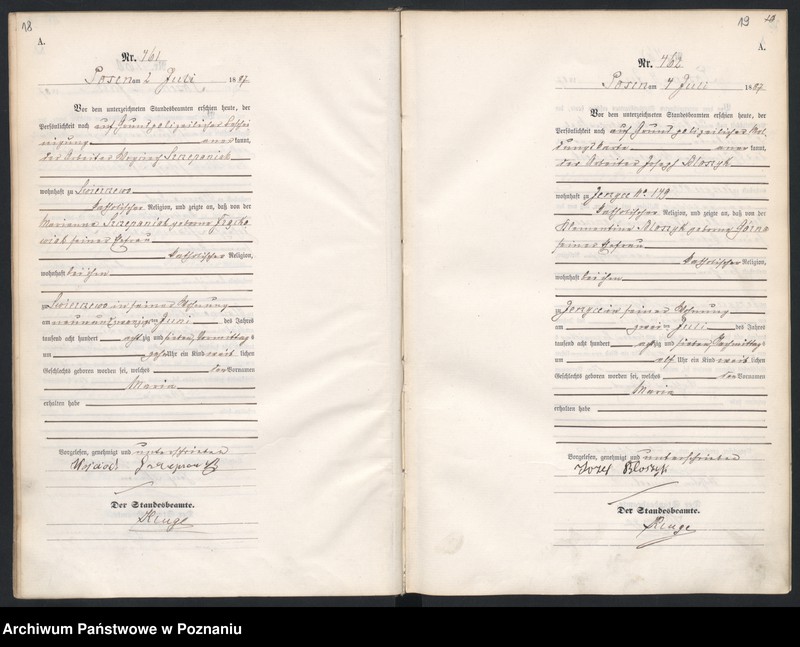 18
A.
Nr. 761
Posen am 2 Juli 1887
Vor dem unterzeichneten Standesbeamten erschien heute, der
Persönlichkeit nach auf Grund polizeilicher Beschei
nigung anerkannt,
der Arbeiter Szczepaniak
wohnhaft zu Swierzewo
katholischer Religion, und zeigte an, daß von der
Marianna Szczepaniak geborne
seiner Ehefrau
katholischer Religion,
wohnhaft bei ihm
zu Swierzewo in seiner Wohnung
am neunundzwanzigsten Juni des Jahres
tausend acht hundert achtzig und sieben, Vormittags
um Uhr ein Kind weiblichen
Geschlechts geboren worden sei, welches den Vornamen
Maria
erhalten habe
Vorgelesen, genehmigt und unterschrieben
Der Standesbeamte.
Kluge
19
A.
Nr. 762
Posen am 4 Juli 1887
Vor dem unterzeichneten Standesbeamten erschien heute, der
Persönlichkeit nach auf Grund polizeilicher Mel
dungskarte anerkannt,
der Arbeiter Joseph Kloszyk
wohnhaft zu Jerzyce No. 179
katholischer Religion, und zeigte an, daß von der
Klementina geborne Górna
seiner Ehefrau
katholischer Religion,
wohnhaft bei ihm
zu Jerzyce in seiner Wohnung
am zweiten Juli des Jahres
tausend acht hundert achtzig und sieben, Nachmittags
um elf Uhr ein Kind weiblichen
Geschlechts geboren worden sei, welches den Vornamen
Maria
erhalten habe
Vorgelesen, genehmigt und unterschrieben
Der Standesbeamte.
Kluge
Archiwum Państwowe w Poznaniu